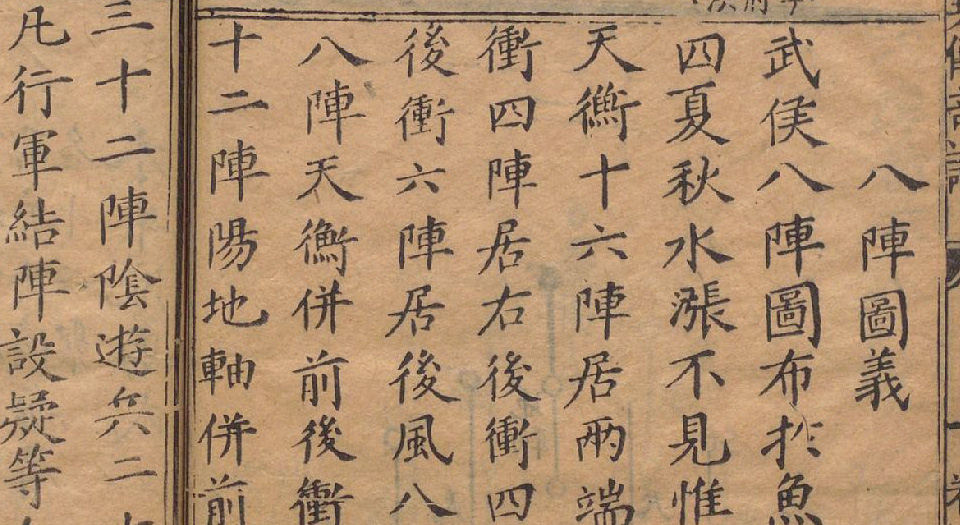 八陣圖義
武侯八陣圖布於魚
四夏秋水漲不見惟
天衡十六陣居兩端
衝四陣居右後衝四
後衝六陣居後風八
八陣天衡併前後衝
十二陣陽地軸併前
三十二陣陰遊兵二
凡行軍結陣設疑等